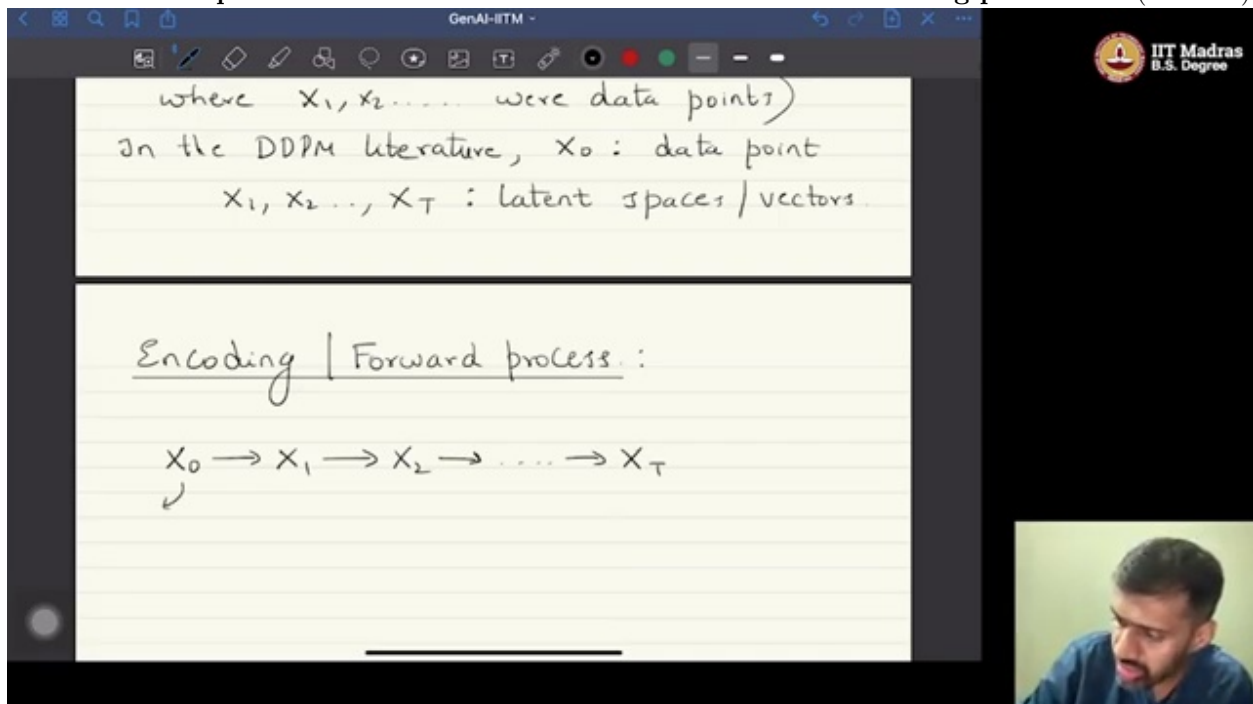 GenAI-IITM
IIT Madras
B.S. Degree
where X₁, X₂ ..... were data points)
In the DDPM literature, X₀ : data point
X₁, X₂ .., X_T : latent spaces/vectors.
Encoding | Forward process :
X₀ → X₁ → X₂ → ..... → X_T